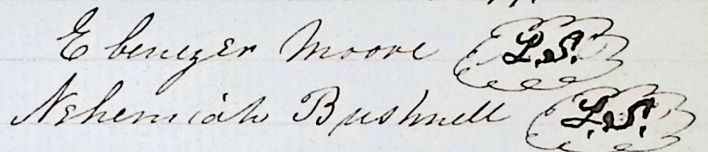 Ebenezer Moore L.S.
Nehemiah Bushnell L.S.